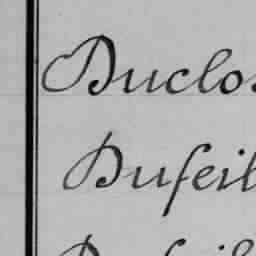 Duclos
Dufeil